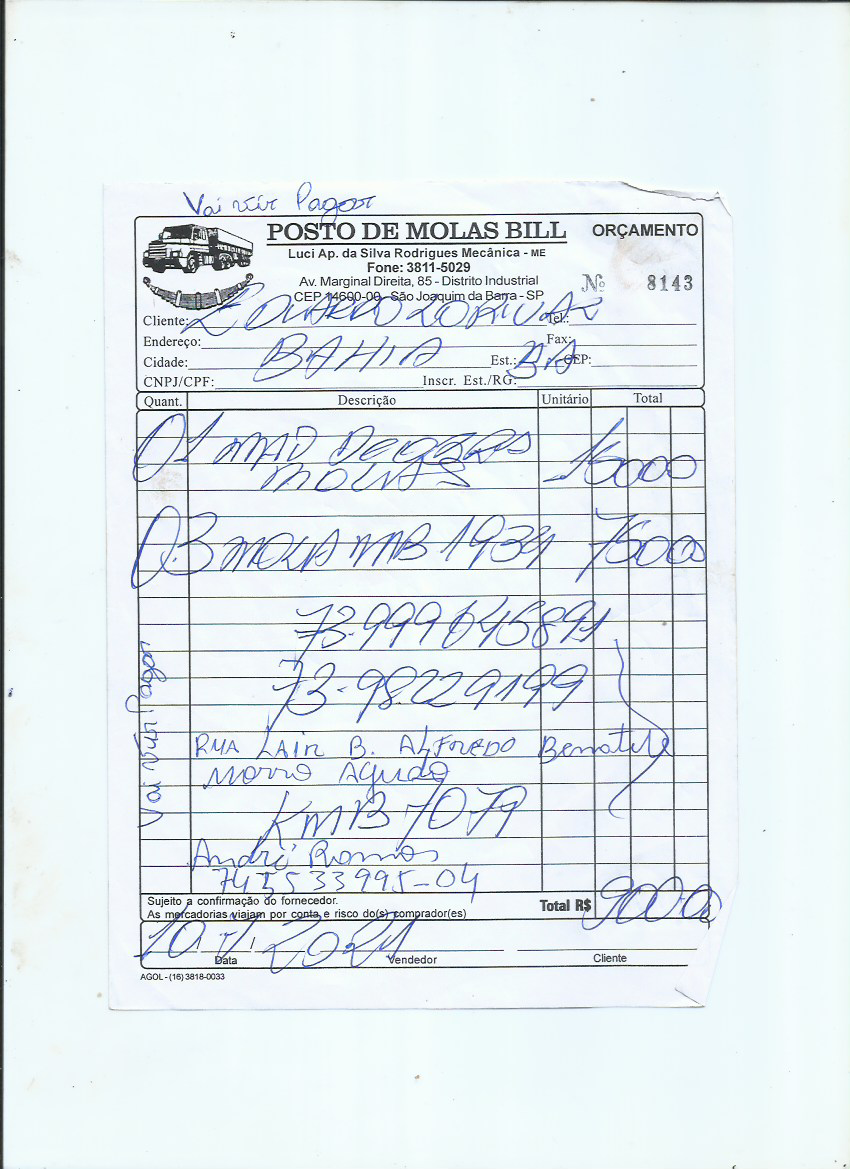 Vai vir Pagar
POSTO DE MOLAS BILL
ORÇAMENTO
Luci Ap. da Silva Rodrigues Mecânica - ME
Fone: 3811-5029
Av. Marginal Direita, 85 - Distrito Industrial
Nº 8143
CEP 14600-00 São Joaquim da Barra - SP
Cliente: EDUARDO Tel.:
Endereço: Fax:
Cidade: BAHIA Est.: BA CEP:
CNPJ/CPF: Inscr. Est./RG:
Quant. Descrição Unitário Total
01 MÃO DE OBRA 15000
MOLAS
03 MOLA MB 1934 75000
73.999645891
73-98.229199
Vai Vir Pagar
RUA LAIR B. ALFREDO
Morro Agudo
KMB 7079
André Ramos
743533995-04
Sujeito a confirmação do fornecedor.
As mercadorias viajam por conta e risco do(s) comprador(es)
Total R$ 90000
10 1 2021
Data Vendedor Cliente
AGOL - (16) 3818-0033